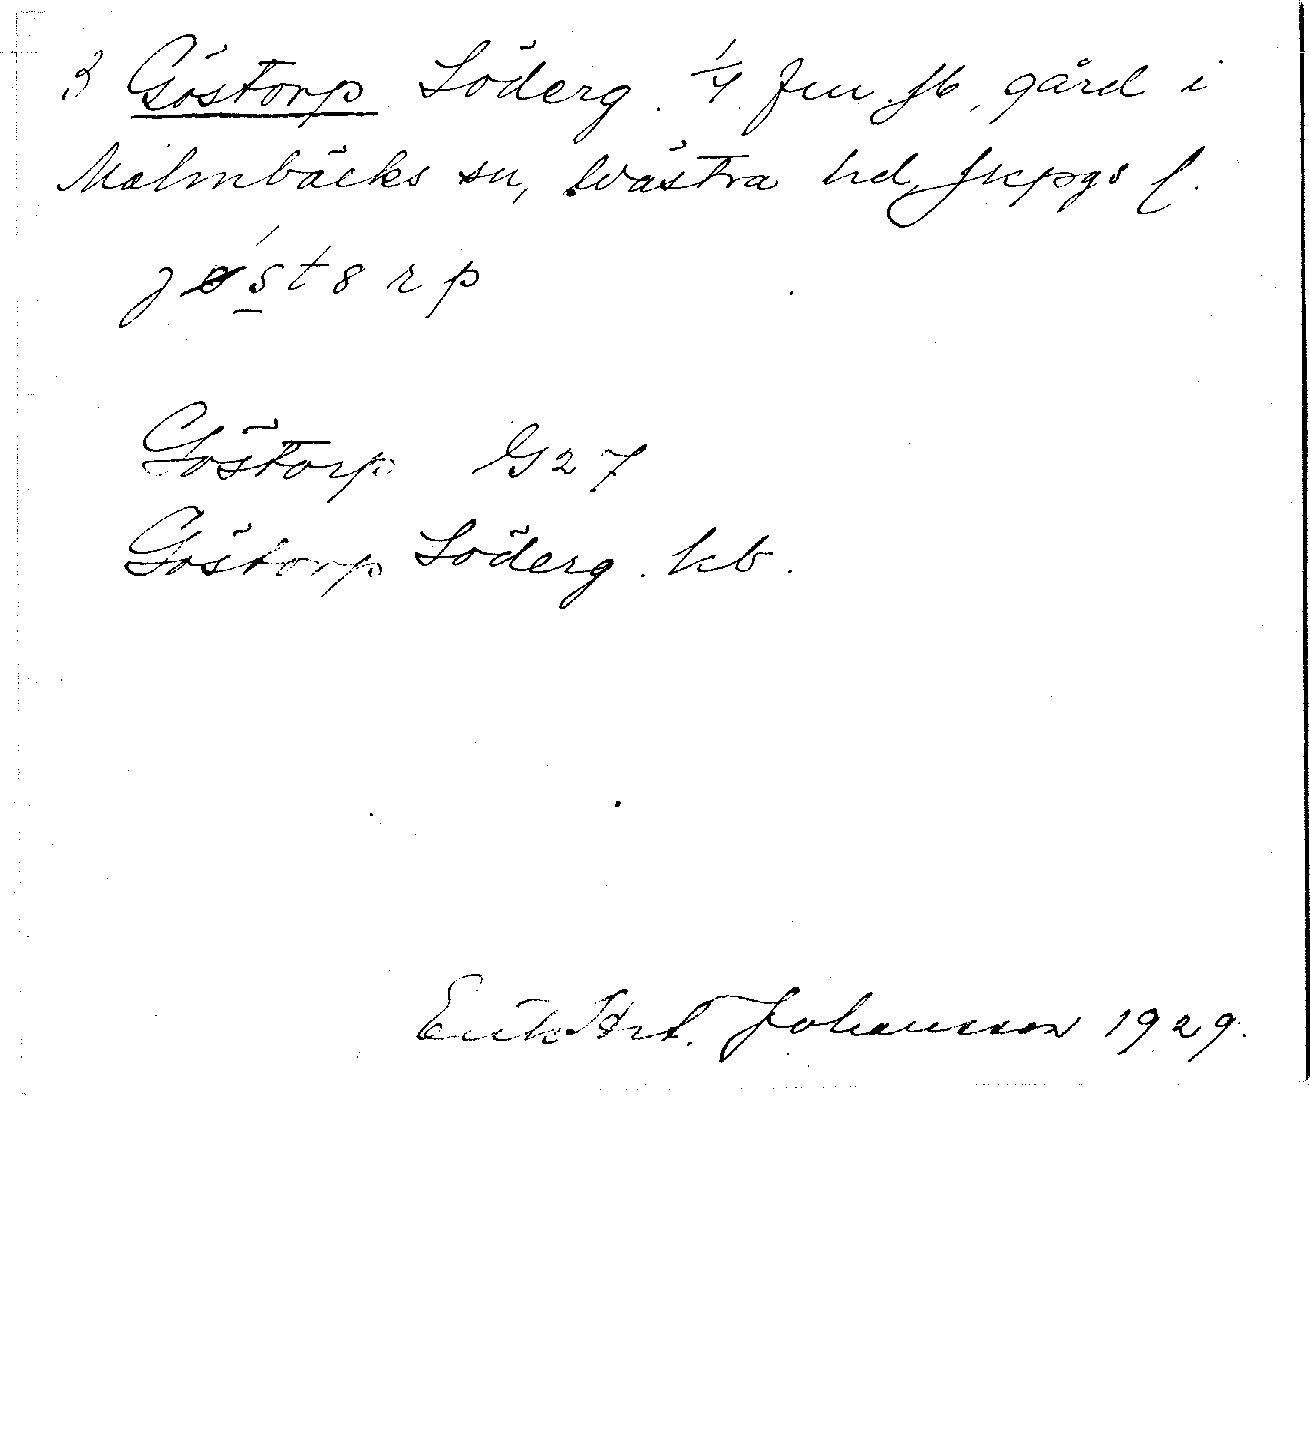 3 Göstorp Söderg. 1/4 fm jb, gård i
Malmbäcks sn, Västra hd, Jkpgs l.
Göstorp G27
Göstorp Söderg. kb.
Erik Art. Johansson 1929.